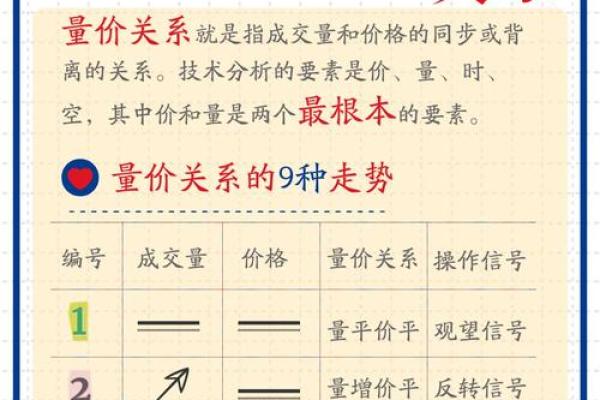 量价关系就是指成交量和价格的同步或背
离的关系。技术分析的要素是价、量、时、
空，其中价和量是两个最根本的要素。
量价关系的9种走势
编号 成交量 价格 量价关系 操作信号
1 量平价平 观望信号
2 量增价平 反转信号